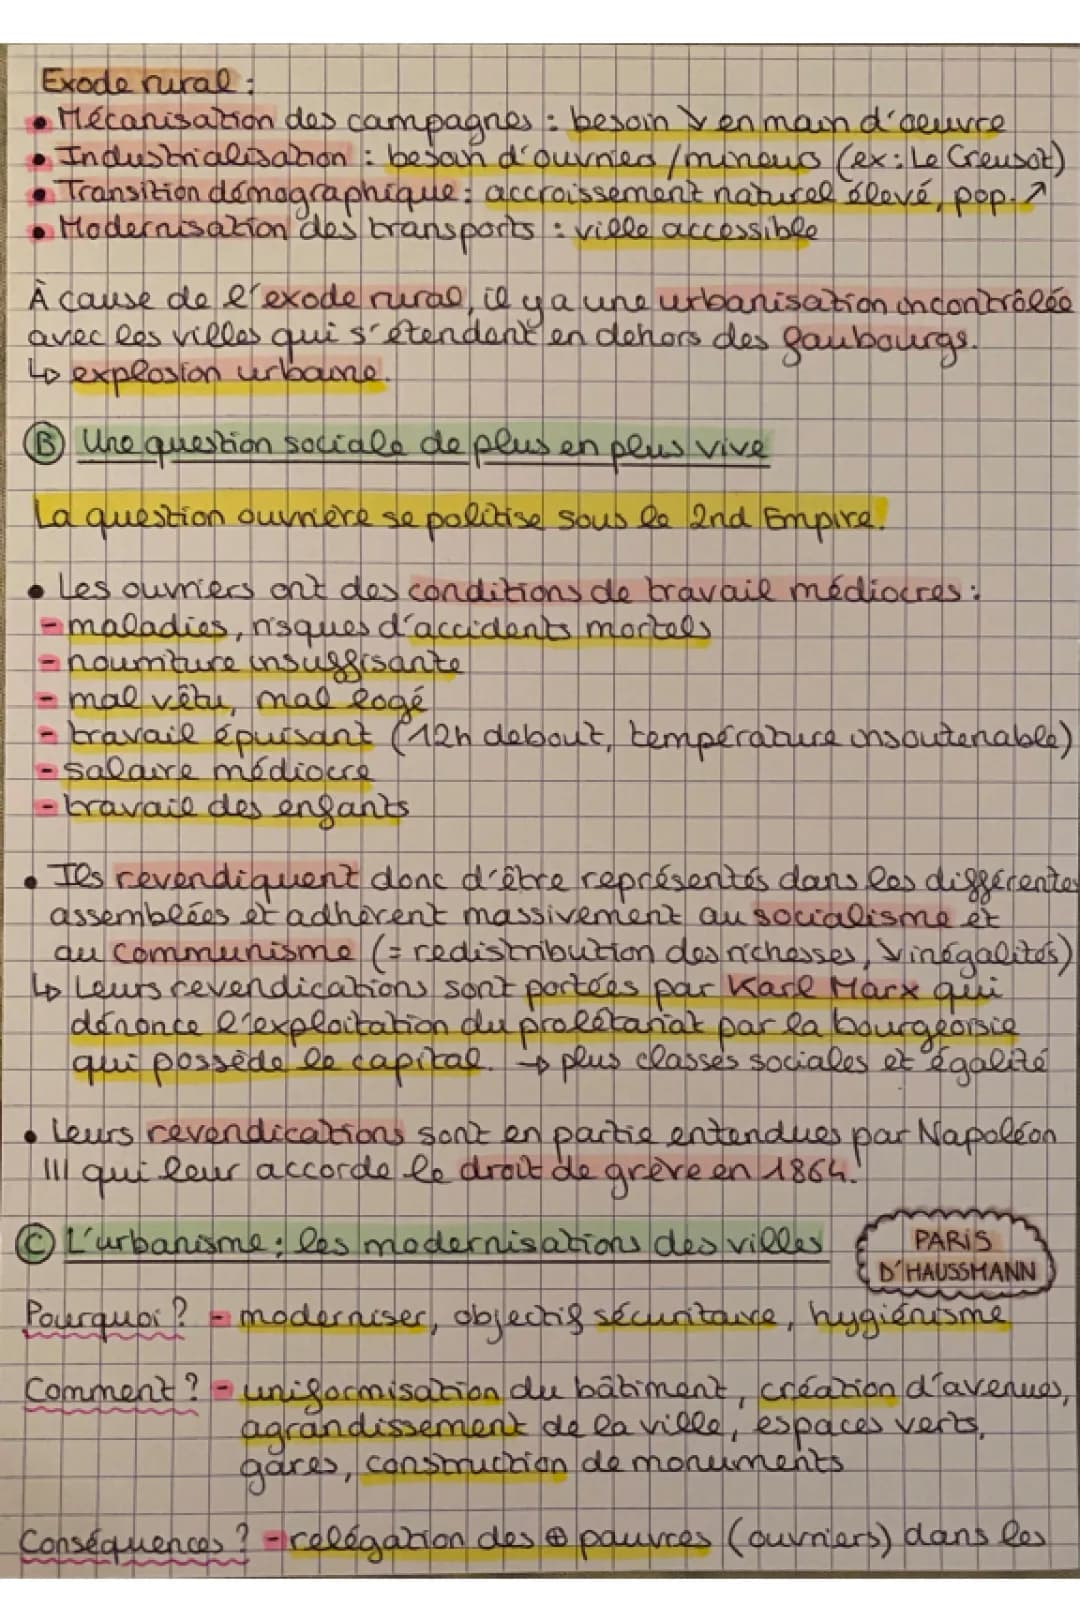 Exode rural :
• Mécanisation des campagnes : besoin ↘ en main d'œuvre
• Industrialisation : besoin d'ouvriers / mineurs (ex : Le Creusot)
• Transition démographique : accroissement naturel élevé, pop. ↗
• Modernisation des transports : ville accessible
À cause de l'exode rural, il y a une urbanisation incontrôlée
avec les villes qui s'étendent en dehors des faubourgs.
↳ explosion urbaine.
Ⓑ Une question sociale de plus en plus vive
La question ouvrière se politise sous le 2nd Empire.
• Les ouvriers ont des conditions de travail médiocres :
- maladies, risques d'accidents mortels
- nourriture insuffisante
- mal vêtu, mal logé
- travail épuisant (12h debout, température insoutenable)
- salaire médiocre
- travail des enfants
• Ils revendiquent donc d'être représentés dans les différentes
assemblées et adhèrent massivement au socialisme et
au communisme (= redistribution des richesses, ↘ inégalités)
↳ Leurs revendications sont portées par Karl Marx qui
dénonce l'exploitation du prolétariat par la bourgeoisie
qui possède le capital. → plus classes sociales et égalité
• Leurs revendications sont en partie entendues par Napoléon
III qui leur accorde le droit de grève en 1864.
Ⓒ L'urbanisme : les modernisations des villes
PARIS
D'HAUSSMANN
Pourquoi ? - moderniser, objectif sécuritaire, hygiénisme
Comment ? - uniformisation du bâtiment, création d'avenues,
agrandissement de la ville, espaces verts,
gares, construction de monuments
Conséquences ? - relégation des ⊕ pauvres (ouvriers) dans les